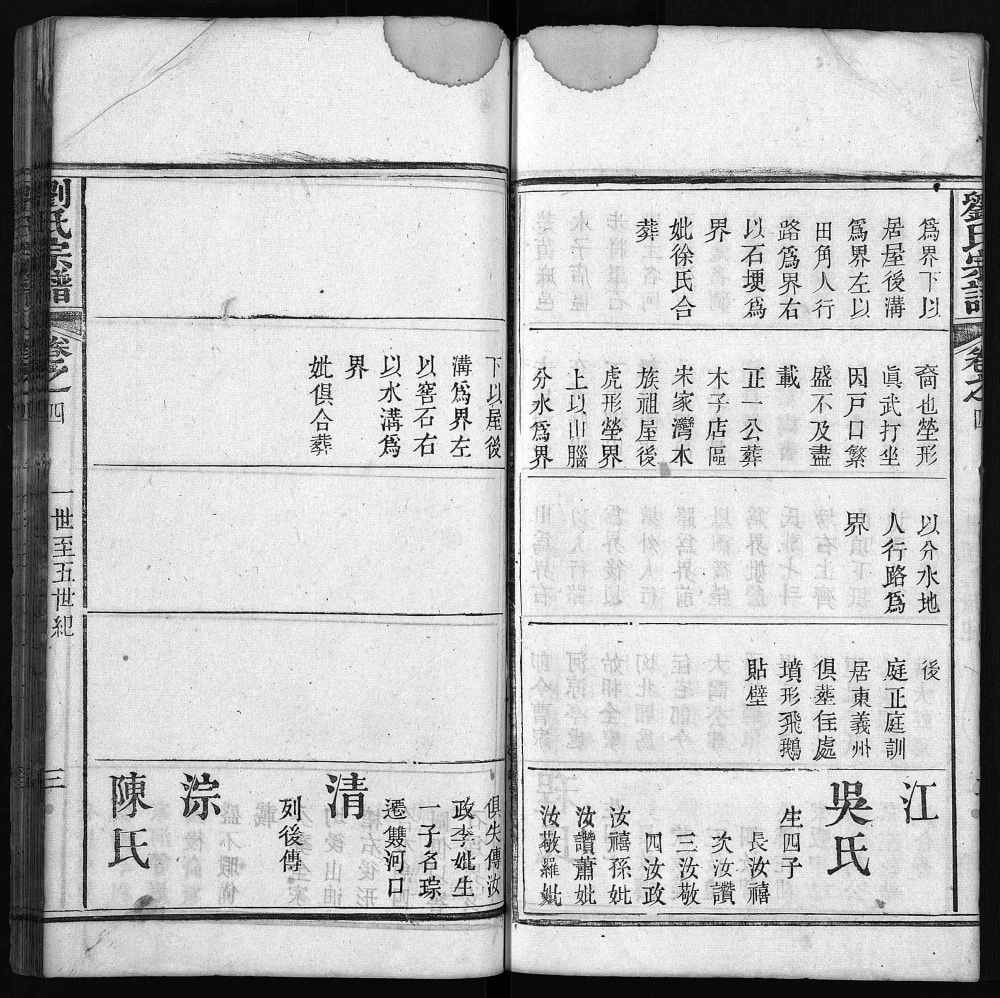 劉氏宗譜
卷之四
爲界下以
居屋後溝
爲界左以
田角人行
路爲界右
以石埂爲
界
妣徐氏合
葬
裔也塋形
眞武打坐
因戶口繁
盛不及盡
載
正一公葬
木子店區
宋家灣木
族祖屋後
虎形塋界
上以山腦
分水爲界
以分水地
人行路爲
界
後
庭正庭訓
居東義州
俱葬住處
墳形飛鵝
貼壁
江
吳氏
生四子
長汝禧
次汝讚
三汝敬
四汝政
汝禧孫妣
汝讚蕭妣
汝敬羅妣
下以屋後
溝爲界左
以窖石右
以水溝爲
界
妣俱合葬
俱失傳汝
政李妣生
一子名琮
遷雙河口
清
列後傳
淙
陳氏
劉氏宗譜
卷之四
一世至五世紀
三